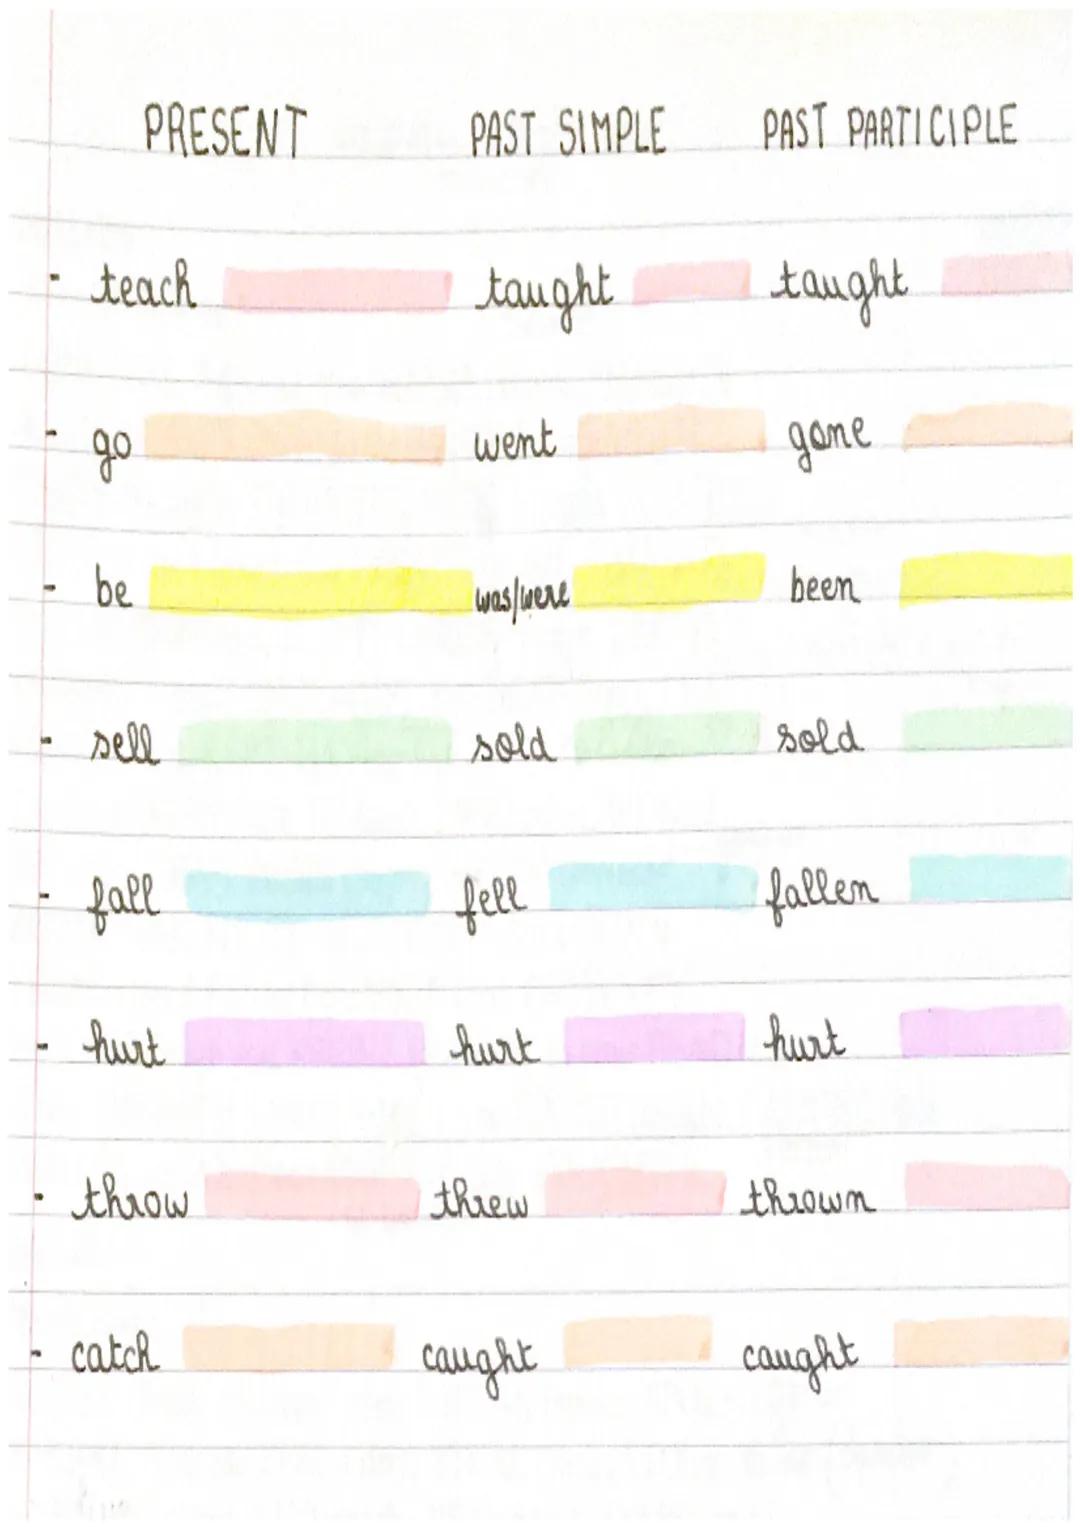 PRESENT PAST SIMPLE PAST PARTICIPLE
- teach taught taught
- go went gone
- be was/were been
- sell sold sold
- fall fell fallen
- hurt hurt hurt
- throw threw thrown
- catch caught caught